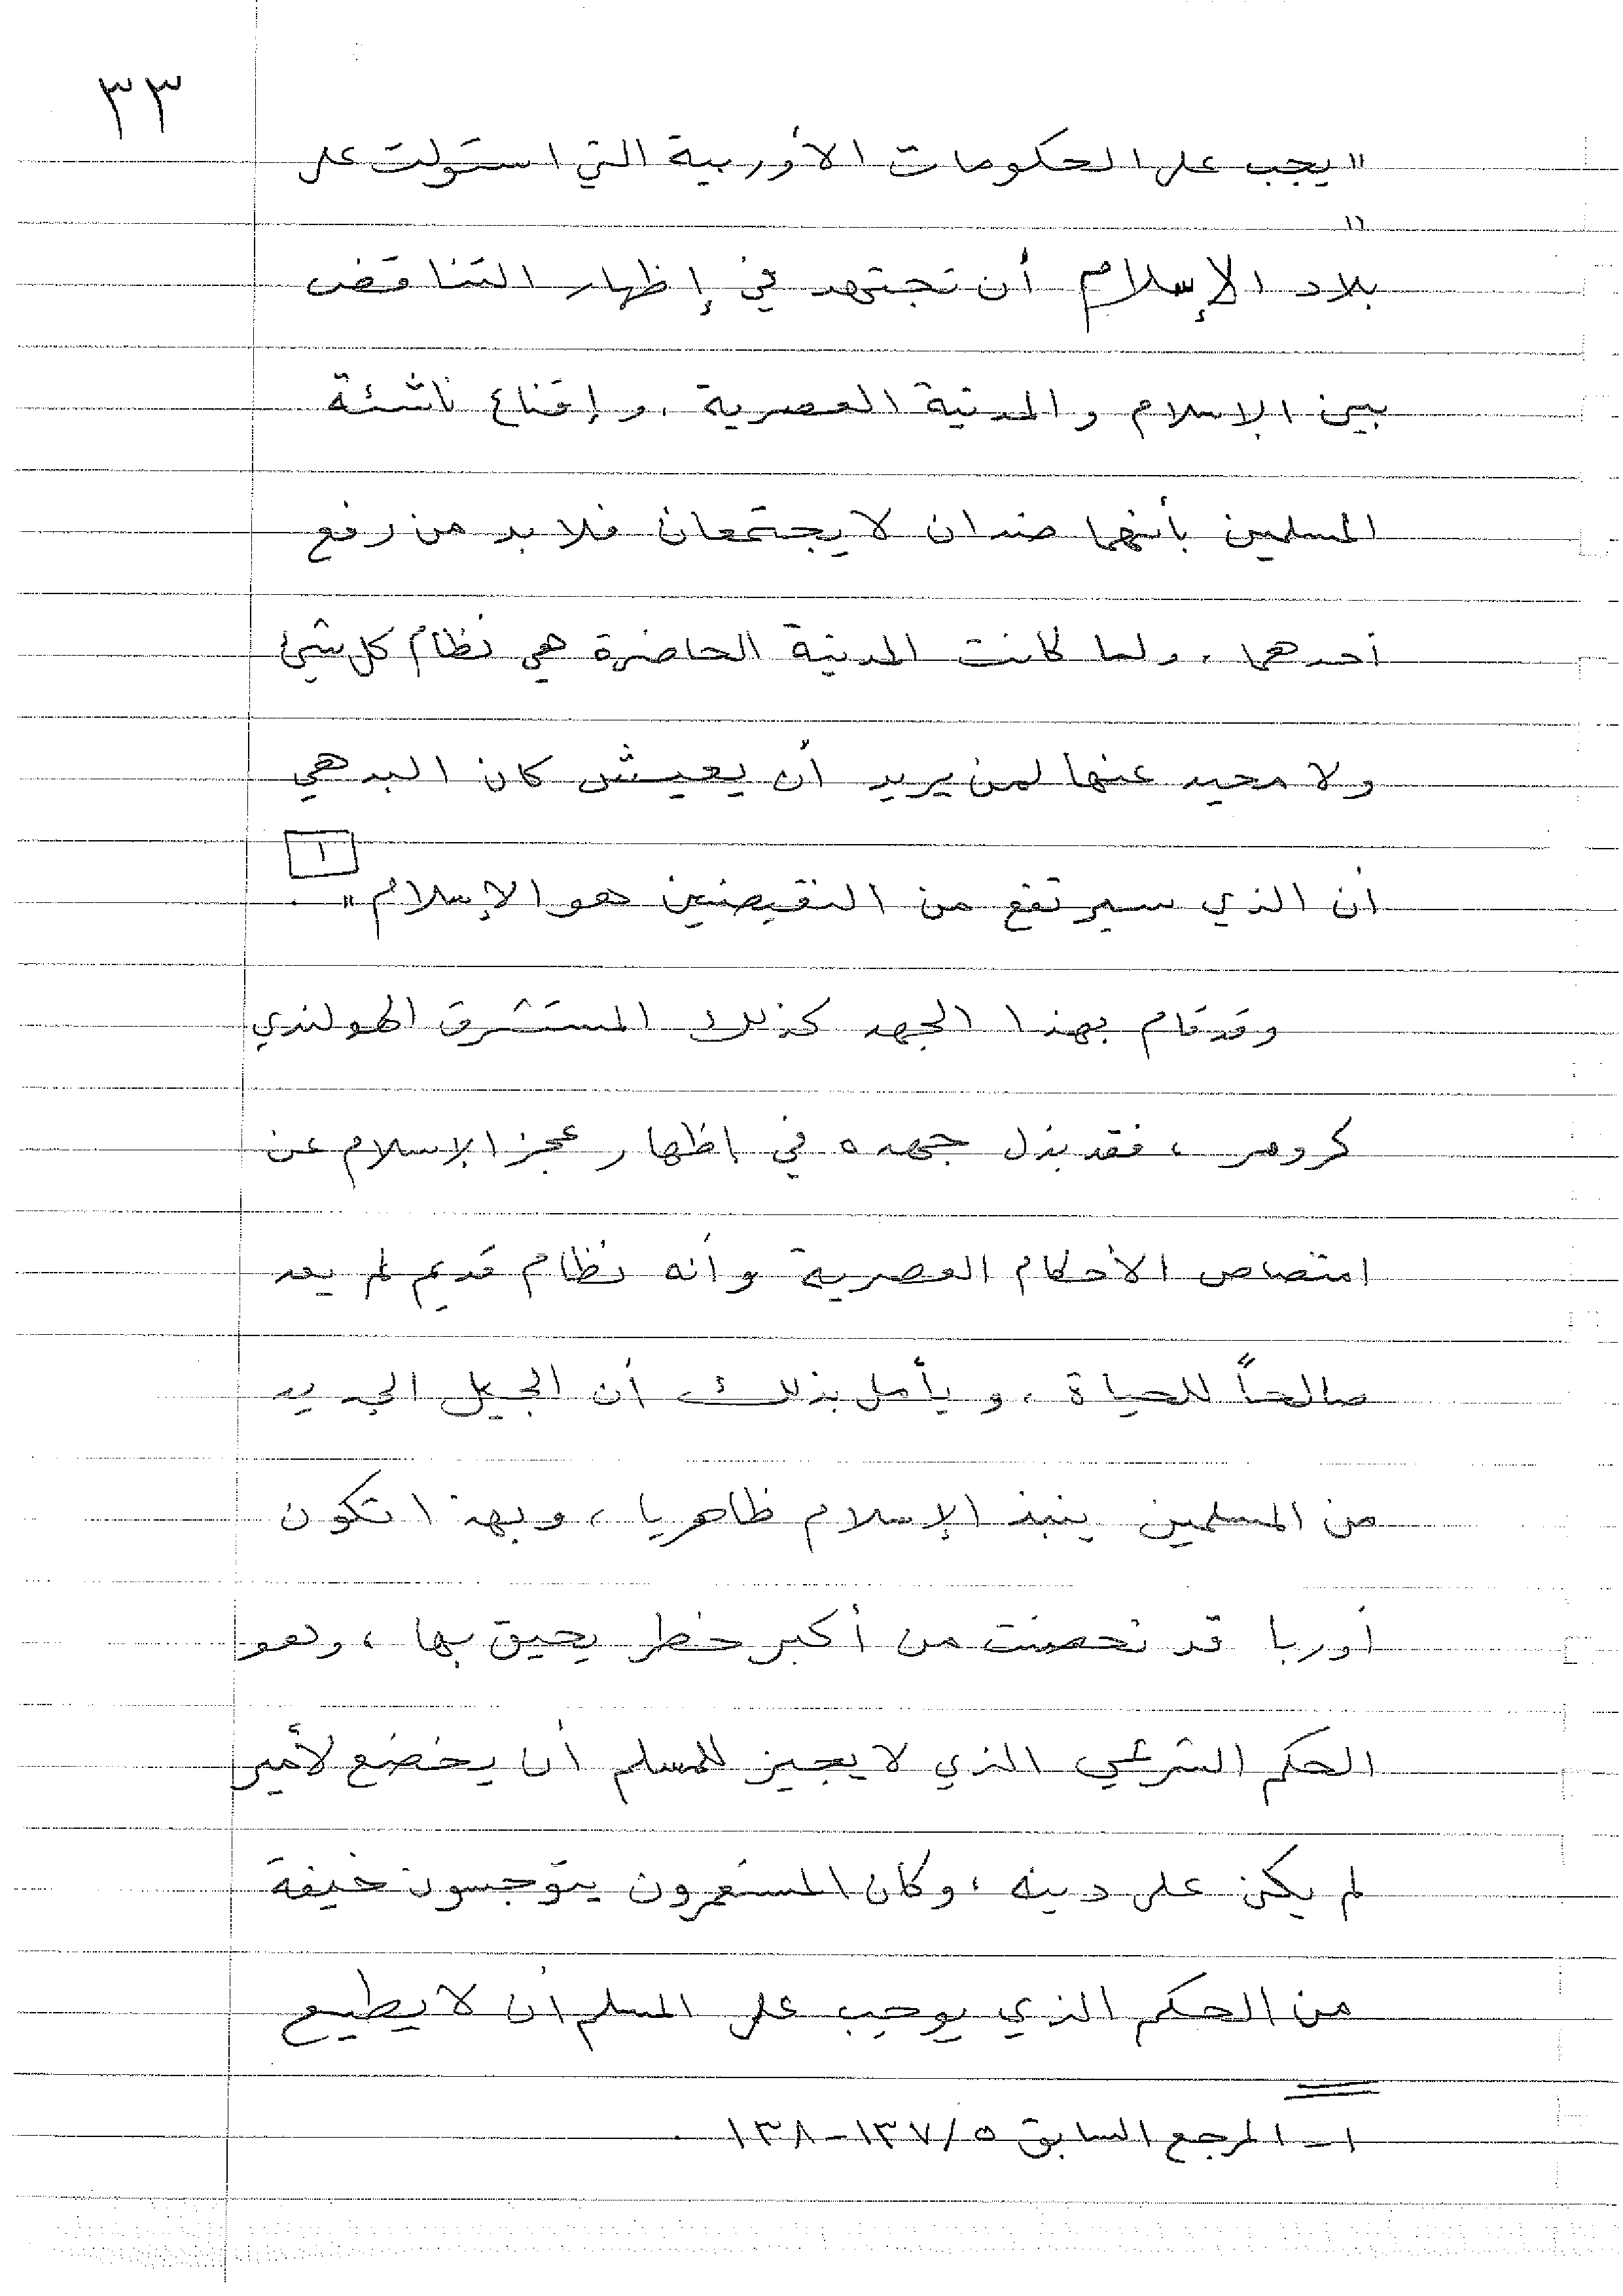 ٣٣
"يجب على الحكومات الأوربية التي استولت على
"
بلاد الإسلام أن تجتهد في إظهار التناقض
بين الإسلام والمدنية العصرية ، وإقناع ناشئة
المسلمين بأنهما ضدان لا يجتمعان فلا بد من رفع
أحدهما ، ولما كانت المدنية الحاضرة هي نظام كل شيئ
ولا محيد عنها لمن يريد أن يعيش كان البدهي
أن الذي سيرتفع من النقيضين هو الإسلام" . [١]
وقد قام بهذا الجهد كذلك المستشرق الهولندي
كرومر ، فقد بذل جهده في إظهار عجز الإسلام عن
امتصاص الأحكام العصرية وأنه نظام قديم لم يعد
صالحاً للحياة ، ويأمل بذلك أن الجيل الجديد
من المسلمين ينبذ الإسلام ظاهريا ، وبهذا تكون
أوربا قد تحصنت من أكبر خطر يحيق بها ، وهو
الحكم الشرعي الذي لا يجيز للمسلم أن يخضع لأمير
لم يكن على دينه ، وكان المستعمرون يتوجسون خيفة
من الحكم الذي يوجب على المسلم أن لا يطيع
١ - المرجع السابق ٥/١٣٧-١٣٨ .